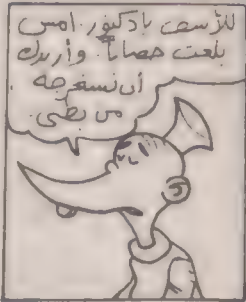 للأسف يا دكتور. امس
بلعت حصاناً. وأريدك
أن تستخرجه
من بطني